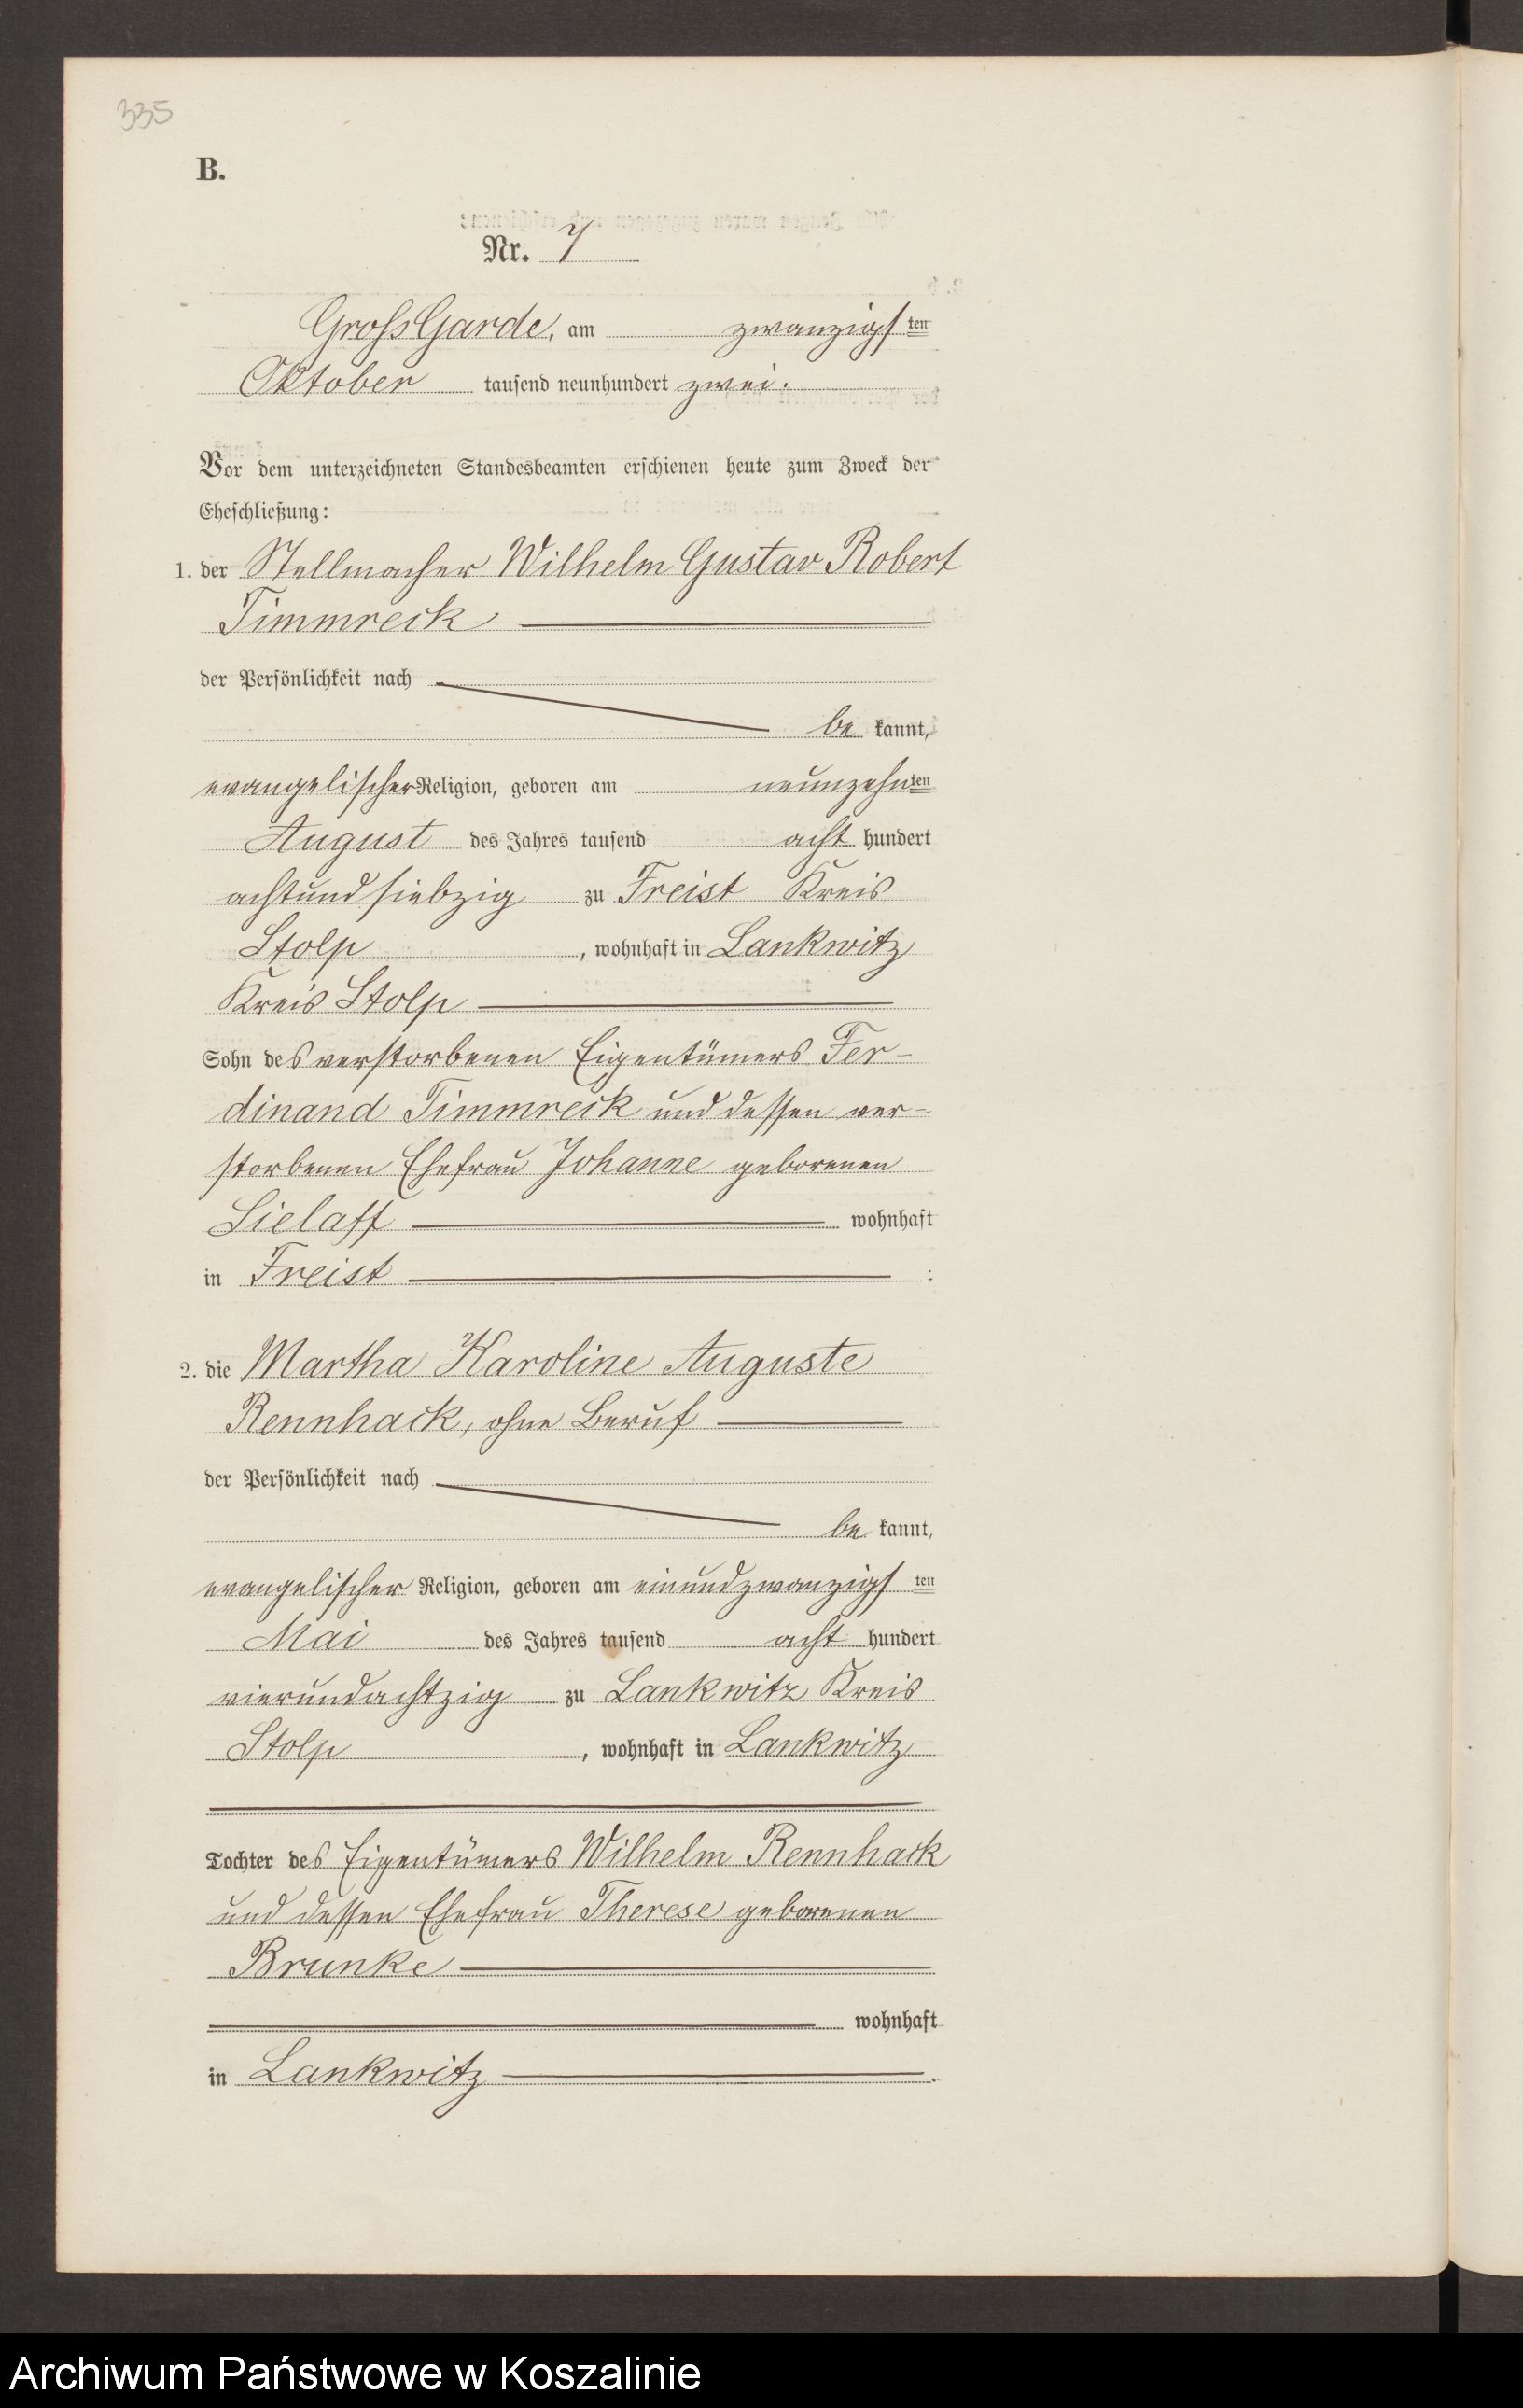 335
B.
Nr. 7
Groß Garde, am zwanzigsten
Oktober tausend neunhundert zwei.
Vor dem unterzeichneten Standesbeamten erschienen heute zum Zweck der
Eheschließung:
1. der Stellmacher Wilhelm Gustav Robert
Timmreck
der Persönlichkeit nach
be kannt,
evangelischer Religion, geboren am neunzehnten
August des Jahres tausend acht hundert
achtundsiebzig zu Freist Kreis
Stolp, wohnhaft in Lankwitz
Kreis Stolp
Sohn des verstorbenen Eigentümers Fer-
dinand Timmreck und dessen ver-
storbenen Ehefrau Johanne geborenen
Sielaff wohnhaft
in Freist :
2. die Martha Karoline Auguste
Rennhack, ohne Beruf
der Persönlichkeit nach
be kannt,
evangelischer Religion, geboren am einundzwanzigsten
Mai des Jahres tausend acht hundert
vierundachtzig zu Lankwitz Kreis
Stolp, wohnhaft in Lankwitz
Tochter des Eigentümers Wilhelm Rennhack
und dessen Ehefrau Therese geborenen
Brunke
wohnhaft
in Lankwitz.
Archiwum Państwowe w Koszalinie